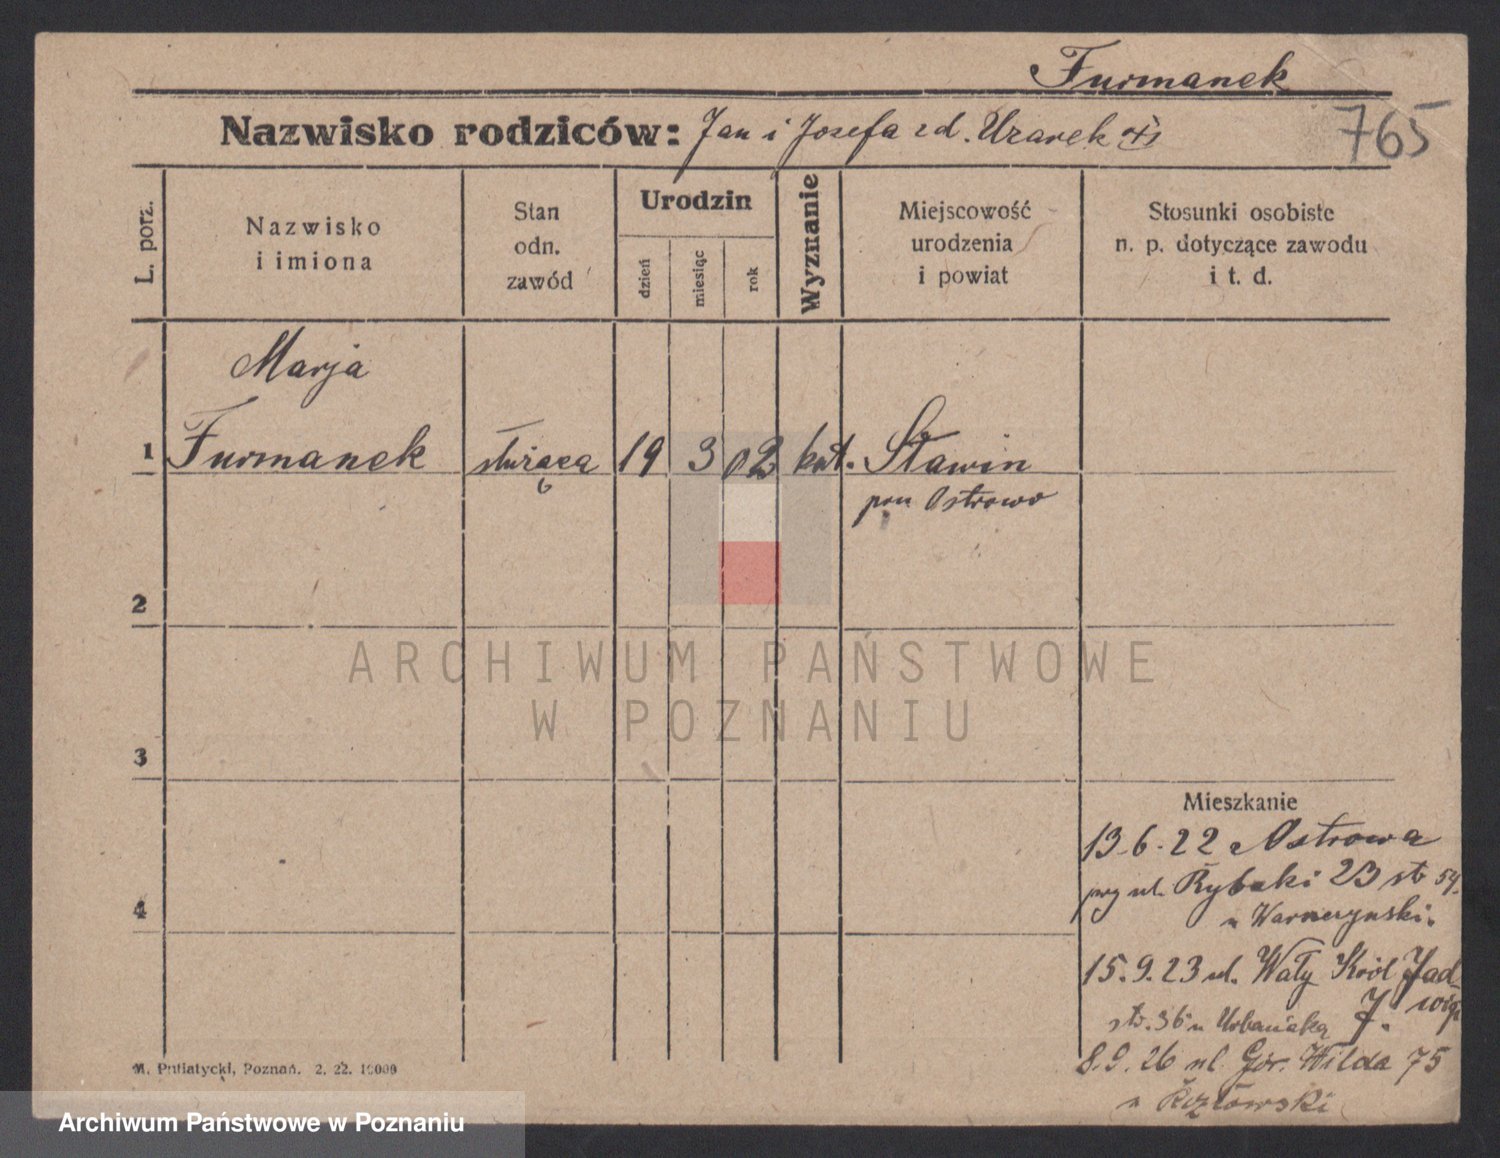 Furmanek
765
Nazwisko rodziców: Jan i Josefa zd. Uzarek
L. porz.
Nazwisko i imiona
Stan odn. zawód
Urodzin
dzień
miesiąc
rok
Wyznanie
Miejscowość urodzenia i powiat
Stosunki osobiste n. p. dotyczące zawodu i t. d.
Marja
1 Furmanek służąca 19 3 02 kat. Sławin
pow Ostrowo
2
ARCHIWUM PAŃSTWOWE
W POZNANIU
3
Mieszkanie
13.6.22 z Ostrowa
4
przy ul. Rybaki 23 str 54.
u Warnczynski.
15.9.23 ul. Wały Król Jadwigi
str. 36 u Urbaniaka
8.9.26 ul. Gór. Wilda 75
u Kozłowski
M. Putiatycki, Poznań. 2. 22. 10000
Archiwum Państwowe w Poznaniu